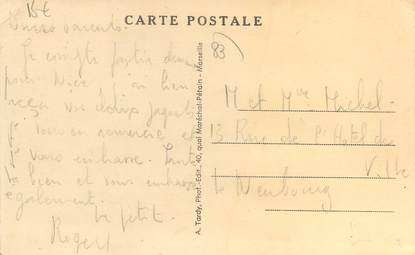 15€
CARTE POSTALE
83
Chers parents.
Je compte partir
pour Nice. J'ai bien
reçu vos deux
Vous en remercie et
vous embrasse. Tante
va bien et vous embrasse
également.
Le petit.
Roger
A. Tardy, Phot.-Edit., 40, quai Maréchal-Pétain - Marseille
M et Mme Michel
13 Rue de l'Hotel de
Ville
le Neubourg